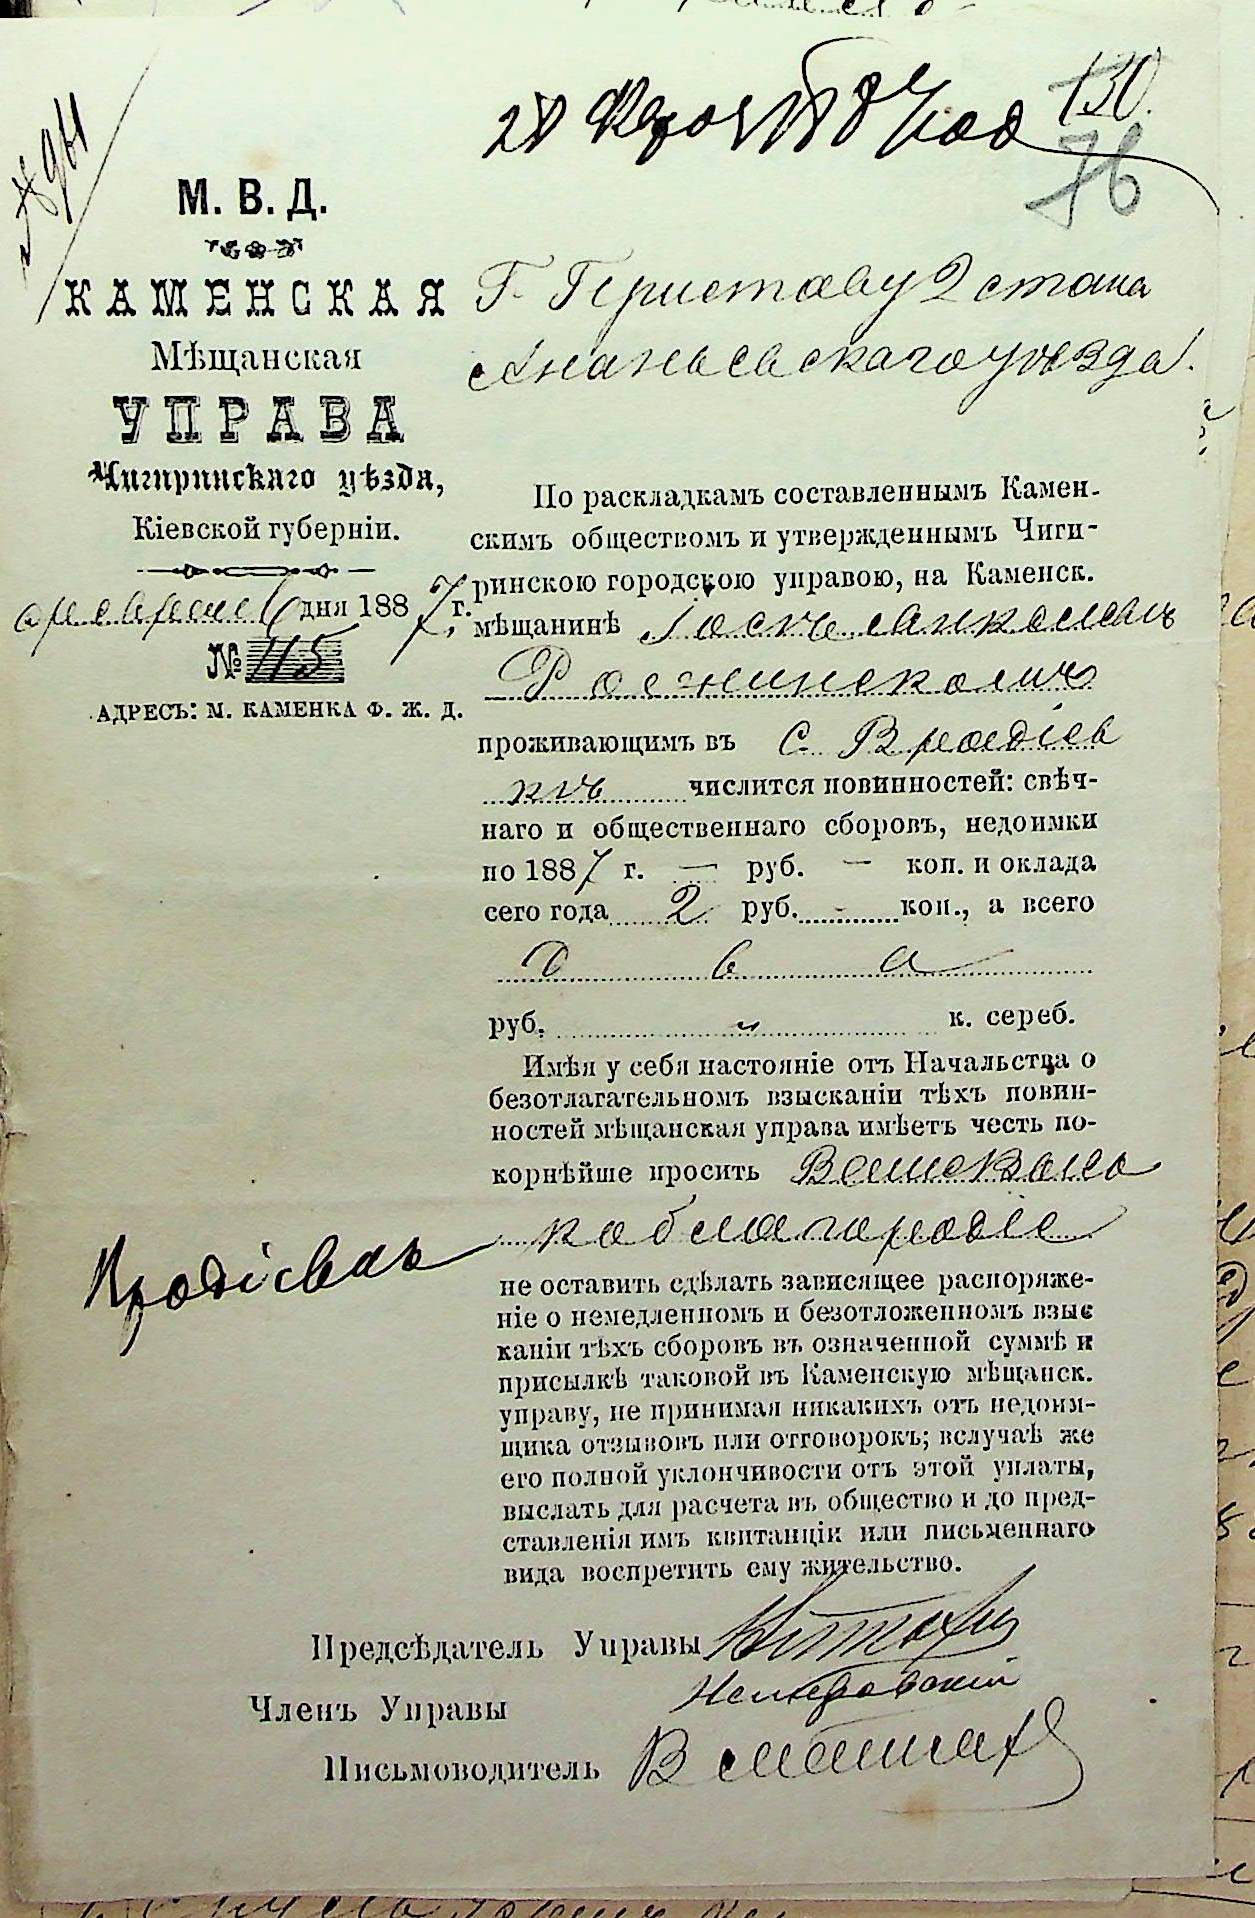 130.
76
№ 961
М. В. Д.
КАМЕНСКАЯ
Мѣщанская
УПРАВА
Чигиринскаго уѣзда,
Кіевской губерніи.
февраля 6 дня 1887 г.
№ 115
АДРЕСЪ: М. КАМЕНКА Ф. Ж. Д.
Г. Приставу 2 стана
Ананьевскаго уѣзда.
По раскладкамъ составленнымъ Камен-
скимъ обществомъ и утвержденнымъ Чиги-
ринскою городскою управою, на Каменск.
мѣщанинѣ
проживающимъ въ с. Врадіев
кѣ числится повинностей: свѣч-
наго и общественнаго сборовъ, недоимки
по 1887 г. — руб. — коп. и оклада
сего года 2 руб. - коп., а всего
два
руб. " к. сереб.
Имѣя у себя настояніе отъ Начальства о
безотлагательномъ взысканіи тѣхъ повин-
ностей мѣщанская управа имѣетъ честь по-
корнѣйше просить Ваше Высо
коблагородіе
Кродіевкъ
не оставить сдѣлать зависящее распоряже-
ніе о немедленномъ и безотложенномъ взыс
каніи тѣхъ сборовъ въ означенной суммѣ и
присылкѣ таковой въ Каменскую мѣщанск.
управу, не принимая никакихъ отъ недоим-
щика отзывовъ или отговорокъ; вслучаѣ же
его полной уклончивости отъ этой уплаты,
выслать для расчета въ общество и до пред-
ставленія имъ квитанціи или письменнаго
вида воспретить ему жительство.
Предсѣдатель Управы
Членъ Управы
Письмоводитель